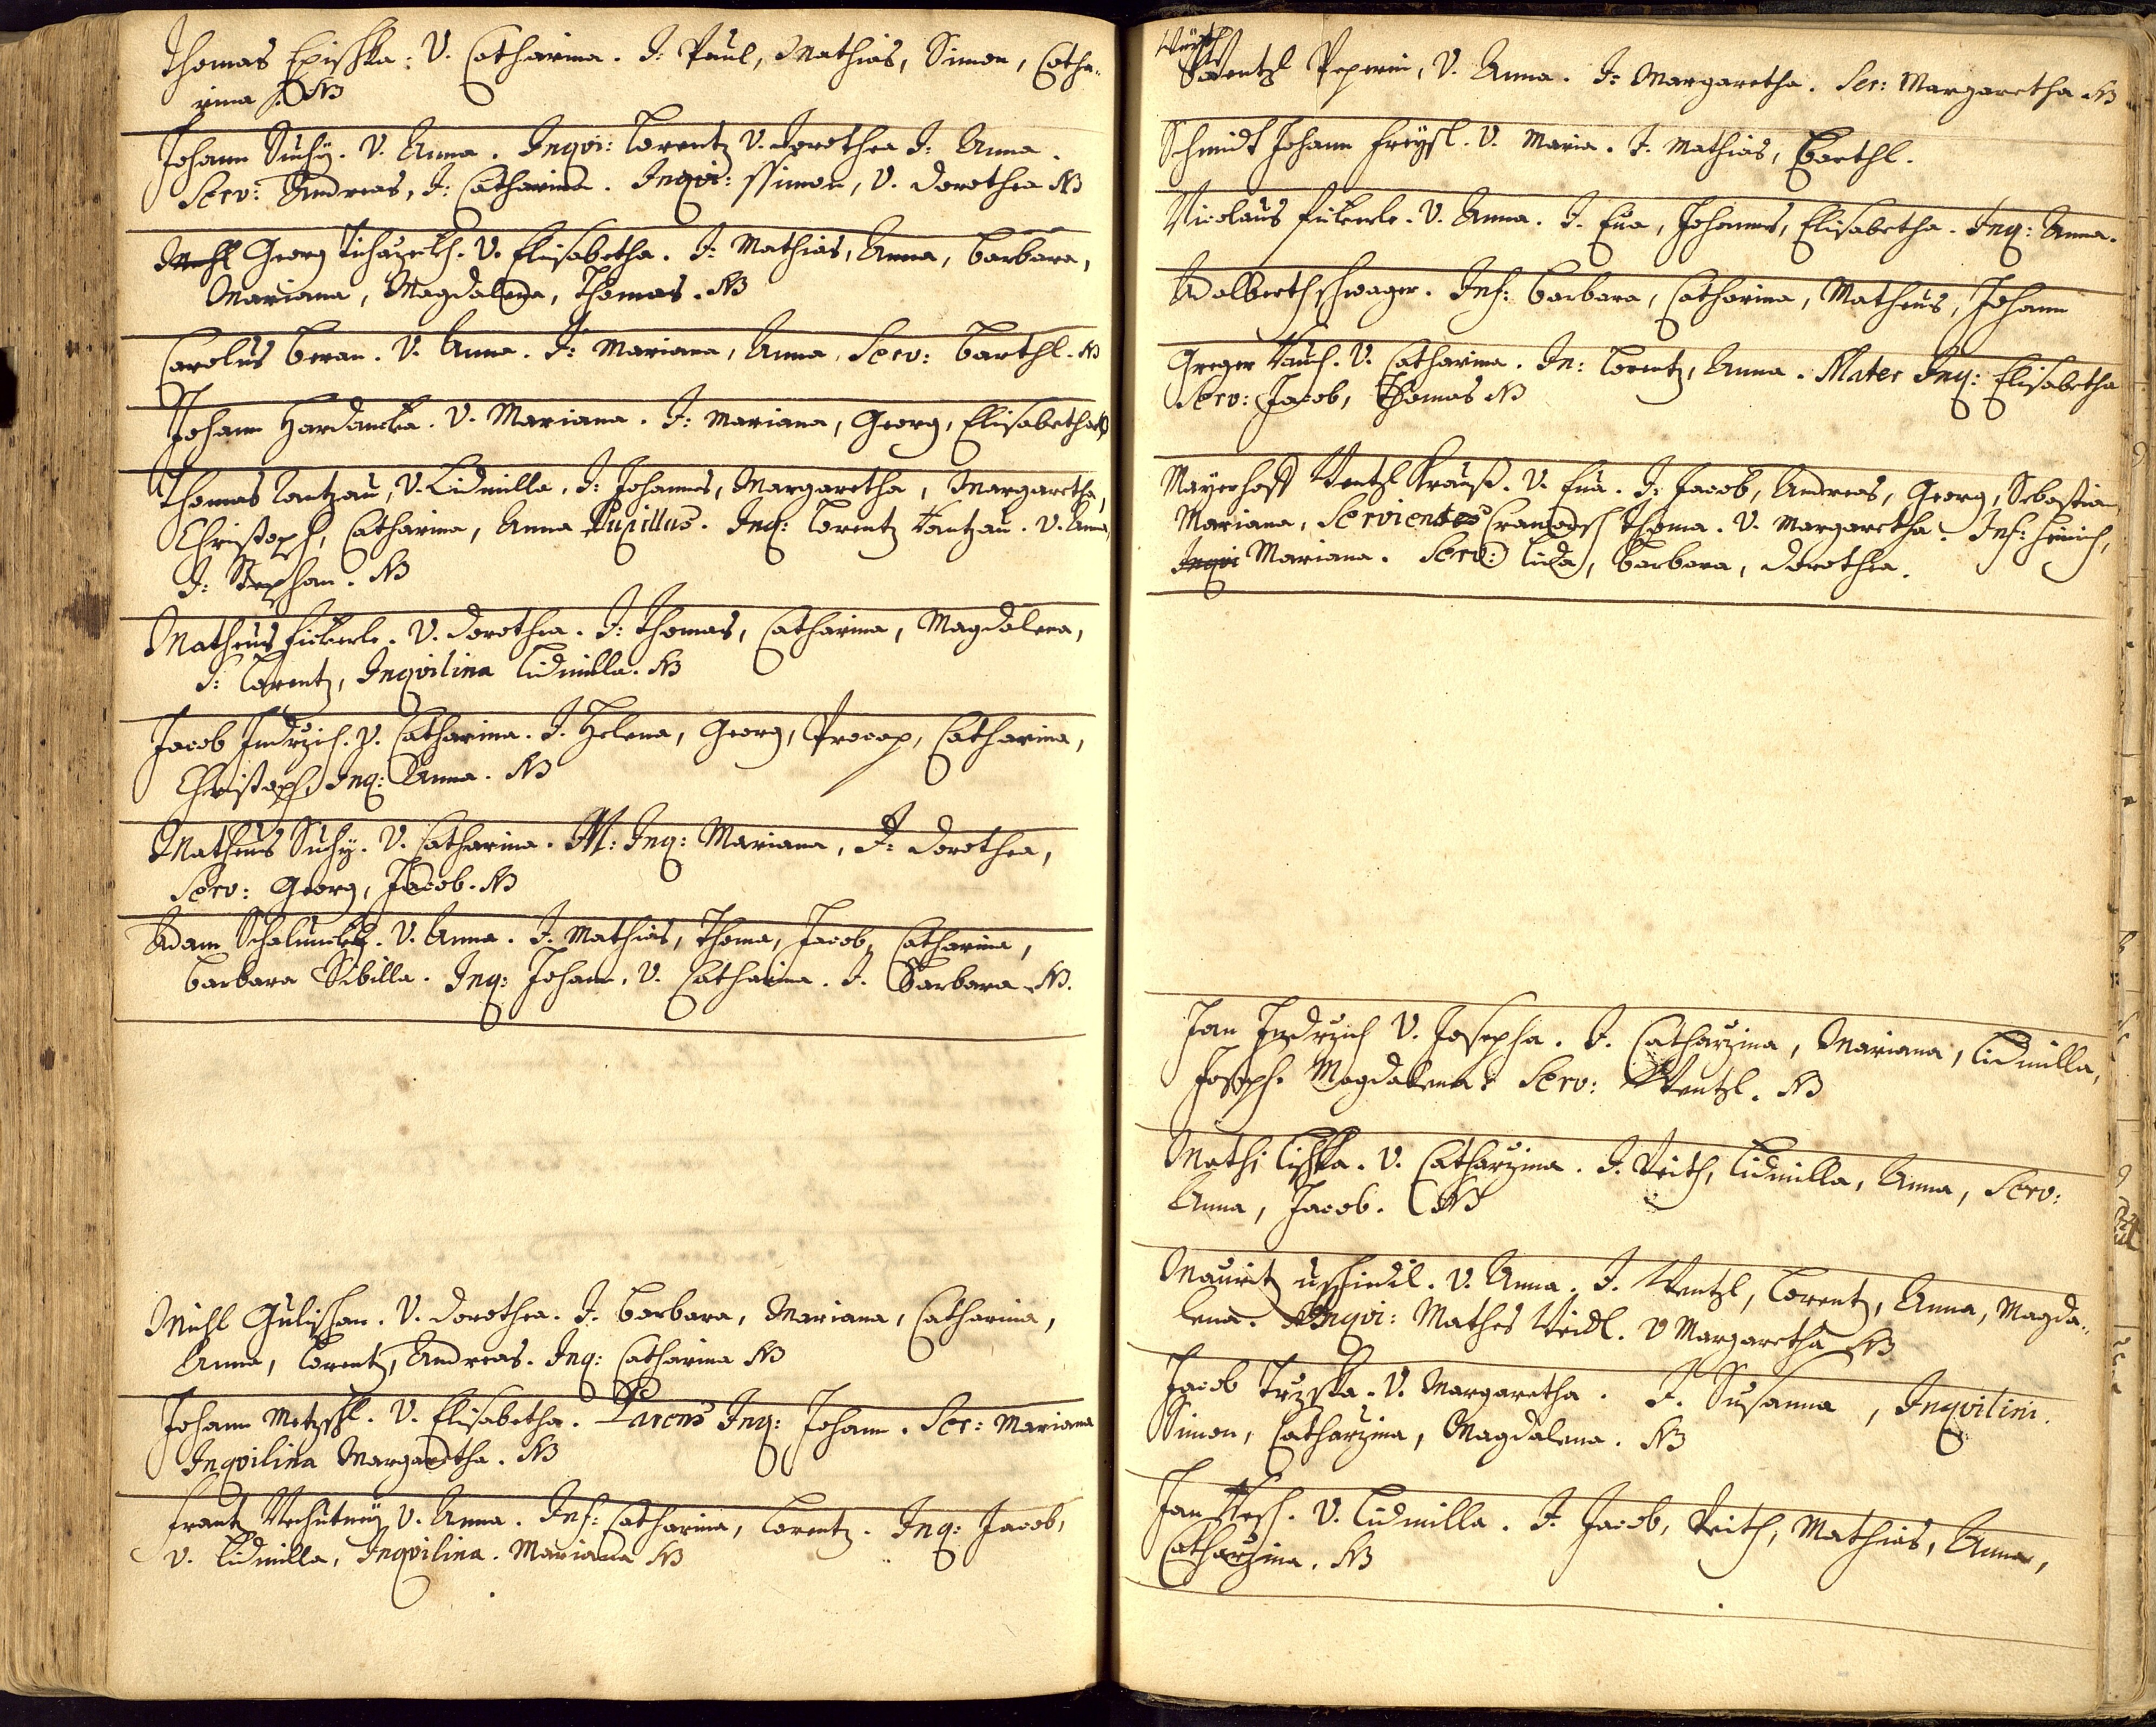 Thomas Episska: V. Catharina. I: Paul, Mathias, Simon, Catha-
rina NB
Johann Suchÿ. V. Anna. Inqvi: Lorentz V. Dorothea I: Anna.
Serv: Andreas, I: Catharina. Inqvi: Ssimon, V. Dorothea NB
Georg V. Elisabetha. I: Mathias, Anna, Barbara,
Mariana, Magdalena, Thomas. NB
Carolus Beran. V. Anna. I: Mariana, Anna, Serv: Barthl. NB
Johann Hardancka. V. Mariana. I: Mariana, Georg, Elisabetha
Thomas V. Lidmilla, I: Johannes, Margaretha, Margaretha,
Christoph, Catharina, Anna Pupillus. Inq: Lorentz V. Anna,
I: Stephan. NB
Matheus Fickerle. V. Dorothea. I: Thomas, Catharina, Magdalena,
I: Lorentz, Inqvilina Lidmilla. NB
Jacob Indrzich. V. Catharina. I. Helena, Georg, Procop, Catharina,
Christoph, Inq: Anna. NB
Matheus Suchy. V. Catharina. M: Inq: Mariana, I: Dorothea,
Serv: Georg, Jacob. NB
Adam V. Anna. I. Mathias, Thoma, Jacob, Catharina,
Barbara Sibilla. Inq: Johann, V. Catharina. I. Barbara NB.
Michl Gulischan. V. Dorothea. I. Barbara, Mariana, Catharina,
Anna, Lorentz, Andreas. Inq: Catharina NB
Johann Metzschl. V. Elisabetha. Parens Inq: Johann. Ser: Mariana
Inqvilina Margaretha. NB
Frantz Nechutny V. Anna. Inf: Catharina, Lorentz. Inq: Jacob,
V. Lidmilla, Inqvilina. Mariana NB
Wentzl Peperin, V. Anna. I: Margaretha. Ser: Margaretha NB
Schmidt Johann V. Maria. I. Mathias, Barthl.
Nicolaus Fickerle. V. Anna. I. Eva, Johannes, Elisabetha. Inq: Anna.
Adalberth Schwager. Inf: Barbara, Catharina, Matheus, Johann
Greger V. Catharina. In: Lorentz, Anna. Mater Inq: Elisabetha
Serv: Jacob, Thomas NB
Mayerhoff Wentzl Krauß. V. Eva. I. Jacob, Andreas, Georg, Sebastian
Mariana, Servientes Thoma. V. Margaretha. Inf: Heinrich,
Inqvi Mariana. Serv: Lida, Barbara, Dorothea.
Jan Indrzich V. Josepha. I. Catharzina, Mariana, Lidmilla,
Joseph. Magdalena. Serv: Wentzl. NB
Mathi Lisska. V. Catharzina. I. Veith, Lidmilla, Anna, Serv:
Anna, Jacob. NB
Mauritz V. Anna. I. Wentzl, Lorentz, Anna, Magda-
lena. Inqvi: Mathes Veidl. V Margaretha NB
Jacob Trzska. V. Margaretha. I. Susanna, Inqvilini.
Simon, Catharzina, Magdalena. NB
Jan V. Lidmilla. I. Jacob, Veith, Mathias, Anna,
Catharzina. NB